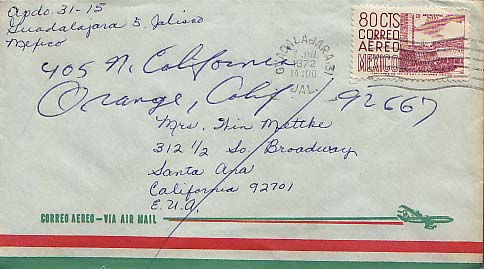 Apdo. 31-15
Guadalajara 5. Jalisco
Mexico
80 CTS
CORREO
AEREO
MEXICO
GUADALAJARA 31
1972
14:00
JAL.
405 N. California
Orange, Calif. 92667
Mrs. Win Mattke
312 1/2 So. Broadway
Santa Ana
California 92701
E.U.A.
CORREO AEREO - VIA AIR MAIL